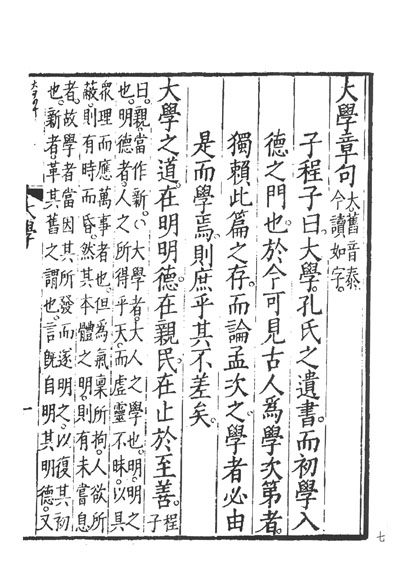 大學章句大舊音泰
今讀如字。
子程子曰。大學。孔氏之遺書。而初學入
德之門也。於今可見古人爲學次第者。
獨賴此篇之存。而論孟次之。學者必由
是而學焉。則庶乎其不差矣。
大學之道。在明明德。在親民。在止於至善。程子
曰。親當作新。○大學者。大人之學也。明。明之
也。明德者。人之所得乎天。而虛靈不昧。以具
衆理而應萬事者也。但爲氣稟所拘。人欲所
蔽。則有時而昏。然其本體之明。則有未嘗息
者。故學者當因其所發而遂明之。以復其初
也。新者。革其舊之謂也。言既自明其明德。又
大學
一
七